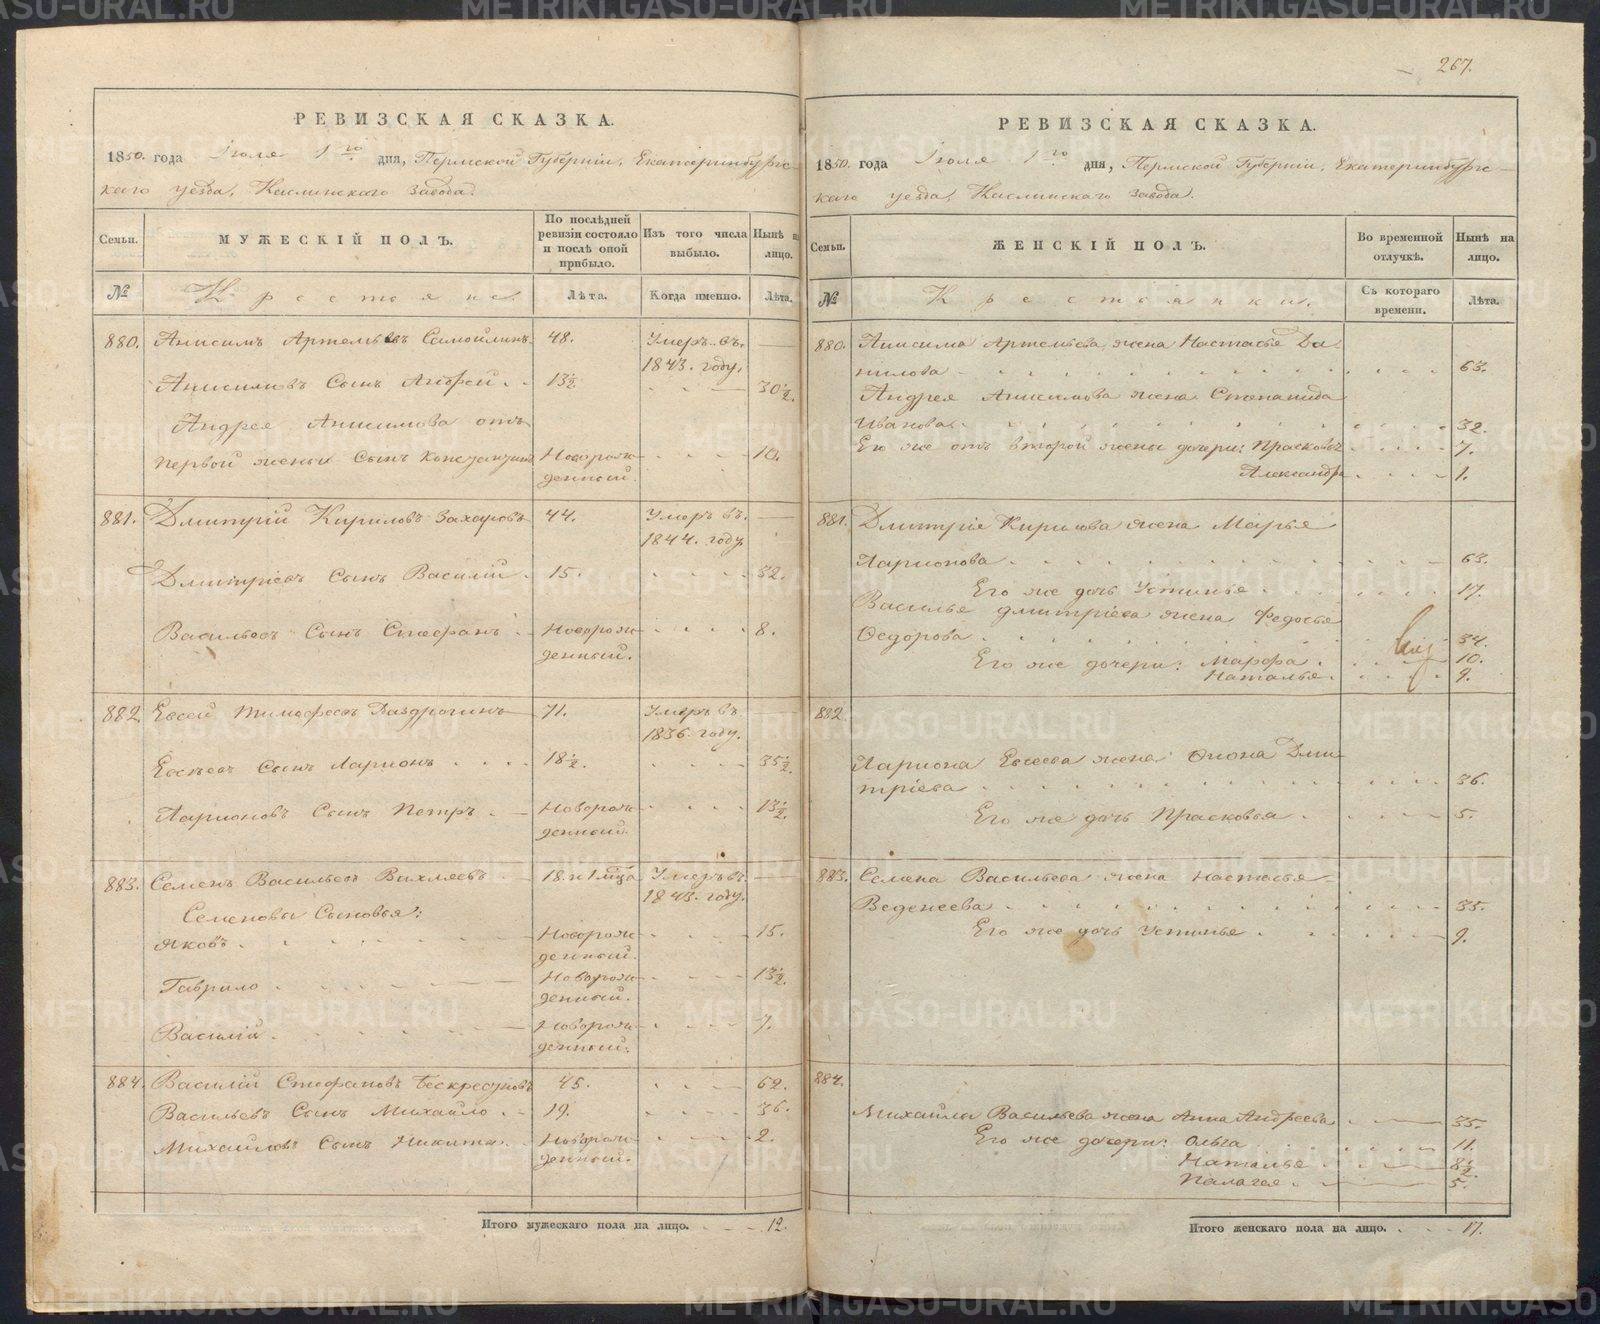 267.
РЕВИЗСКАЯ СКАЗКА.
1850. года Июля 1го дня, Пермской Губерніи, Екатеринбургс-
каго уезда, Каслинскаго Завода.
Семьи.
МУЖЕСКІЙ ПОЛЪ.
По послѣдней ревизіи состояло и послѣ оной прибыло.
Изъ того числа выбыло.
Нынѣ на лицо.
№
Крестьяне.
Лѣта.
Когда именно.
Лѣта.
880. Анисимъ Артемьевъ Самойлинъ 48. Умеръ въ. —
1843. году.
Анисимовъ Сынъ Андрей . . 13½ . . — 30½.
Андрея Анисимова отъ
первой жены Сынъ Константинъ Новорож- . . . . 10.
денный.
881. Дмитрій Кириловъ Захаровъ 44. Умеръ въ. —
1844. году.
Дмитріевъ Сынъ Василій . 15. . . . . 32.
Васильевъ Сынъ Стефанъ . Новорож- . . . . 8.
денный.
882. Евсей Тимофеевъ 71. Умеръ въ —
1836. году.
Евсѣевъ Сынъ Ларионъ . . . . 18½. . . . . 35½.
Ларионовъ Сынъ Петръ . — Новорож- . . . . 13½.
денный.
883. Семенъ Васильевъ Вихляевъ — 18. и 1 м͠ца Умеръ въ. —
1843. году.
Семеновы Сыновья:
Яковъ . . . . . Новорож- . . . . 15.
денный.
Гаврило . . . . — Новорож- . . . . 13½.
денный.
Василій. . . . . — Новорож- . . . . 7.
денный.
884. Василій Стефановъ 45. . . . 62.
Васильевъ Сынъ Михайло . . 19. . . . . 36.
Михайловъ Сынъ Никита . . Новорож- . . . . 2.
денный.
Итого мужескаго пола на лицо. . — — 12.
РЕВИЗСКАЯ СКАЗКА.
1850. года Июля 1го дня, Пермской Губерніи, Екатеринбургс-
каго уезда, Каслинскаго Завода.
Семьи.
ЖЕНСКІЙ ПОЛЪ.
Во временной отлучкѣ.
Нынѣ на лицо.
№
Крестьянки.
Съ котораго времени.
Лѣта.
880. Анисима Артемьева жена Настасья Да-
нилова . . . . . . . 63.
Андрея Анисимова жена Степанида
Иванова . . . . . . . 32.
Его же отъ второй жены дочери: Прасковья . . . . 7.
Александра . . . . 1.
881. Дмитрія Кирилова жена Марья
Ларионова . . . . . . . 63.
Его же дочь Устинья . . . . . . 17.
Василья Дмитріева жена Федосья
Федорова . . . . . . . 34.
Его же дочери: Марфа . . . . 10.
Наталья . . . . 9.
882.
Лариона Евсеева жена Дми-
тріева . . . . . . . 36.
Его же дочь Прасковья . . . . 5.
883. Семена Васильева жена Настасья
Веденеева . . . . . . . 35.
Его же дочь Устинья . . . . 9.
884.
Михайлы Васильева жена Анна Андреева . — 35.
Его же дочери: Ольга . . . . 11.
Наталья . . . . 8½.
Палагея . — 5.
Итого женскаго пола на лицо. . . — 17.
METRIKI.GASO-URAL.RU